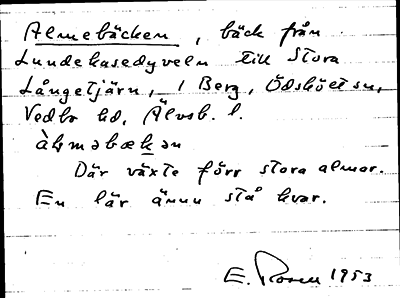 Almebäcken, bäck från
Lundekasedyveln till Stora
Långetjärn, i Berg, Ödsköets sn,
Vedbo hd, Älvsb. l.
àlməbækən
Där växte förr stora almar.
En lär ännu stå kvar.
E. Rosell 1953